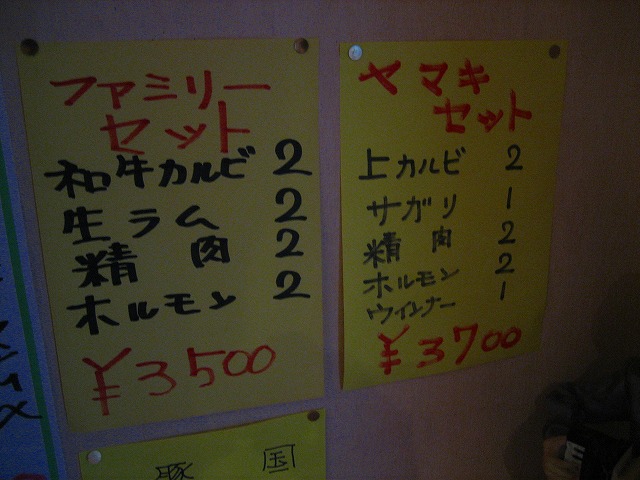 ファミリー
セット
和牛カルビ 2
生ラム 2
精肉 2
ホルモン 2
¥3500
ヤマキ
セット
上カルビ 2
サガリ 1
精肉 2
ホルモン 2
ウインナー 1
¥3700
豚 国